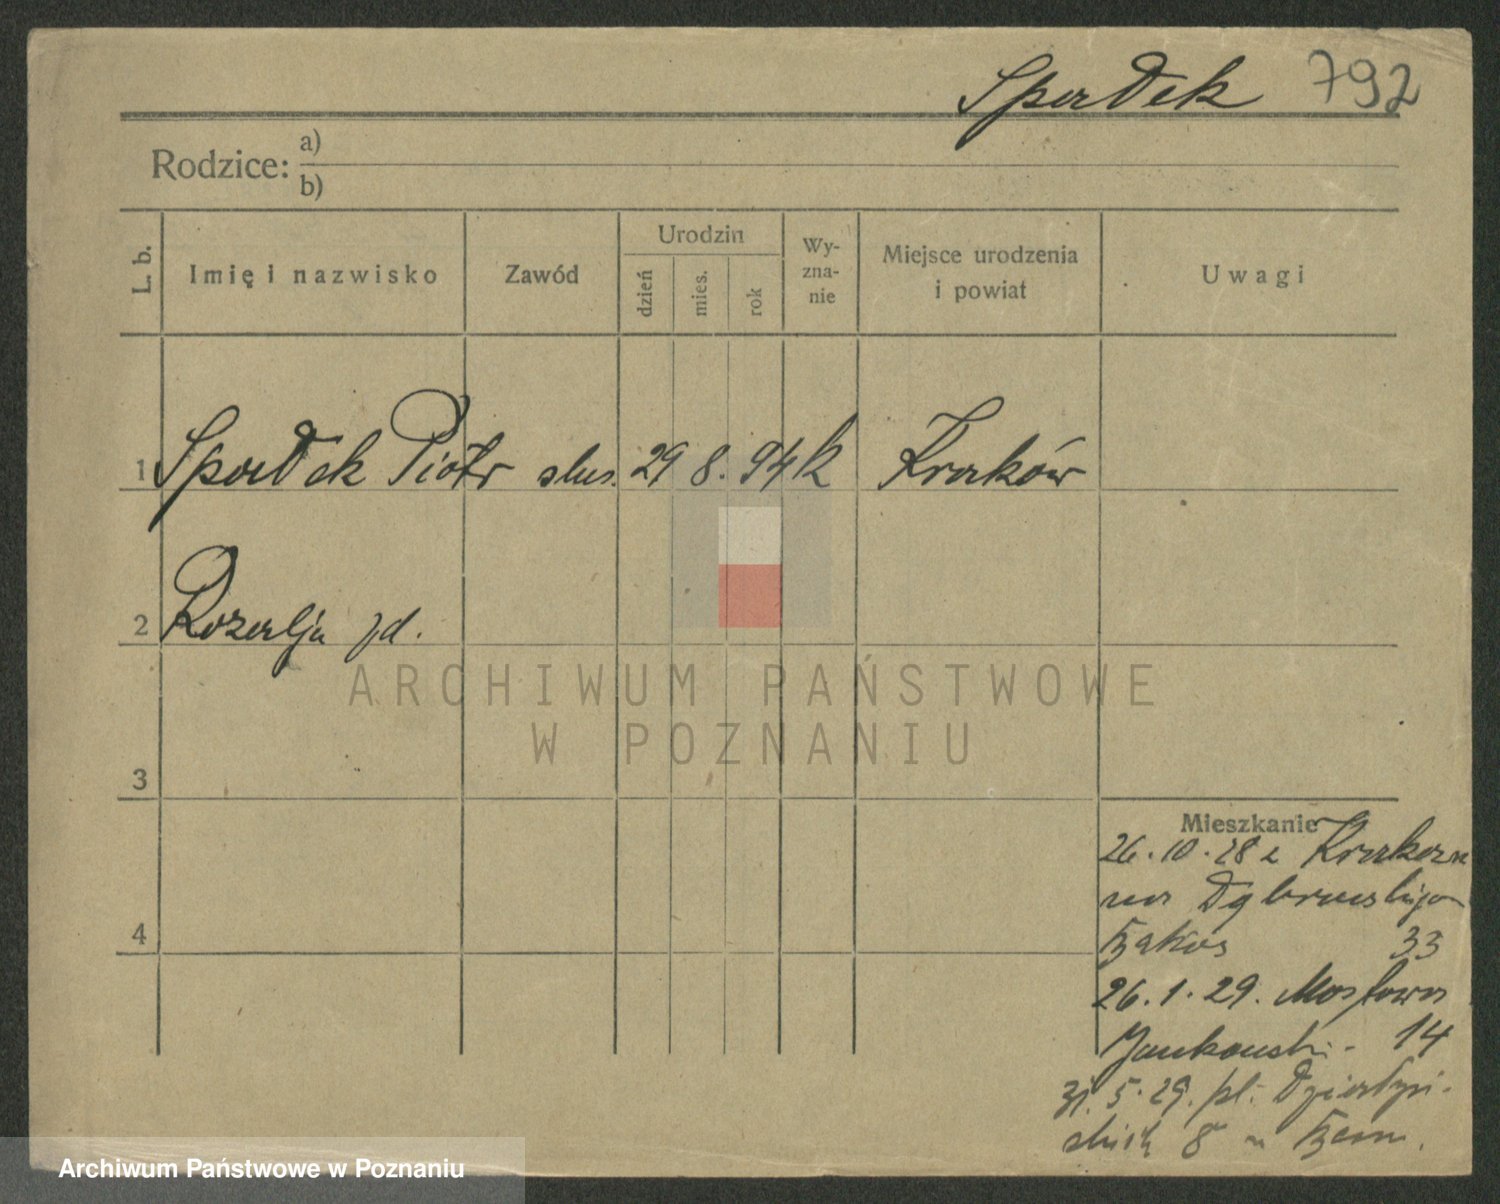 Spadek 792
Rodzice: a)
b)
L. b. Imię i nazwisko Zawód Urodzin dzień mies. rok Wy-zna-nie Miejsce urodzenia i powiat Uwagi
1 Spadek Piotr ślus. 29 8. 94 k Kraków
2 Rozalja żd.
3
4
Mieszkanie
26.10.28 z Krakowa
na Dąbrowskiego
33
26.1.29. Mostowa
Jankowski - 14
31.5.29. pl. Działyń-
skich 8
ARCHIWUM PAŃSTWOWE
W POZNANIU
Archiwum Państwowe w Poznaniu